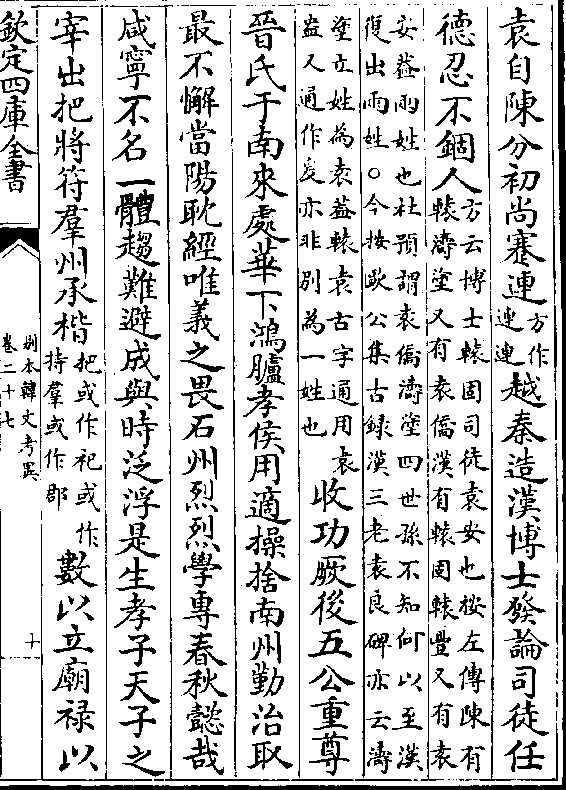 袁自陳分初尚蹇連方作連連越秦造漢博士發論司徒任
德忍不錮人方云博士轅固司徒袁安也桉左傳陳有轅濤塗又有袁僑漢有轅固轅豐又有袁
安葢兩姓也杜預謂袁僑濤塗四世孫不知何以至漢復出兩姓○今按歐公集古録漢三老袁良碑亦云濤
塗立姓為袁葢轅袁古字通用袁盎又通作爰亦非别為一姓也收功厥後五公重尊
晉氏于南來處華下鴻臚孝侯用適操捨南州勤治取
最不懈當陽耽經唯義之畏石州烈烈學專春秋懿哉
咸寧不名一體趨難避成與時泛浮是生孝子天子之
宰出把將符羣州承楷把或作祀或作持羣或作郡數以立廟祿以
欽定四庫全書
别本韓文考異
卷二十七
十